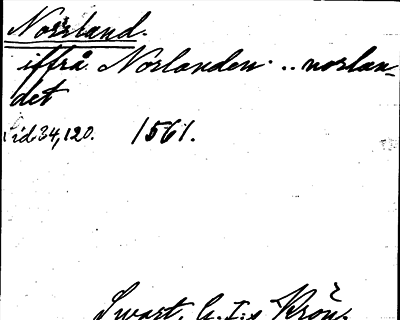 Norrland.
iffrå Norlanden .. norlan-
det
sid 34, 120. 1561.
Swart, G. I:s Krön.